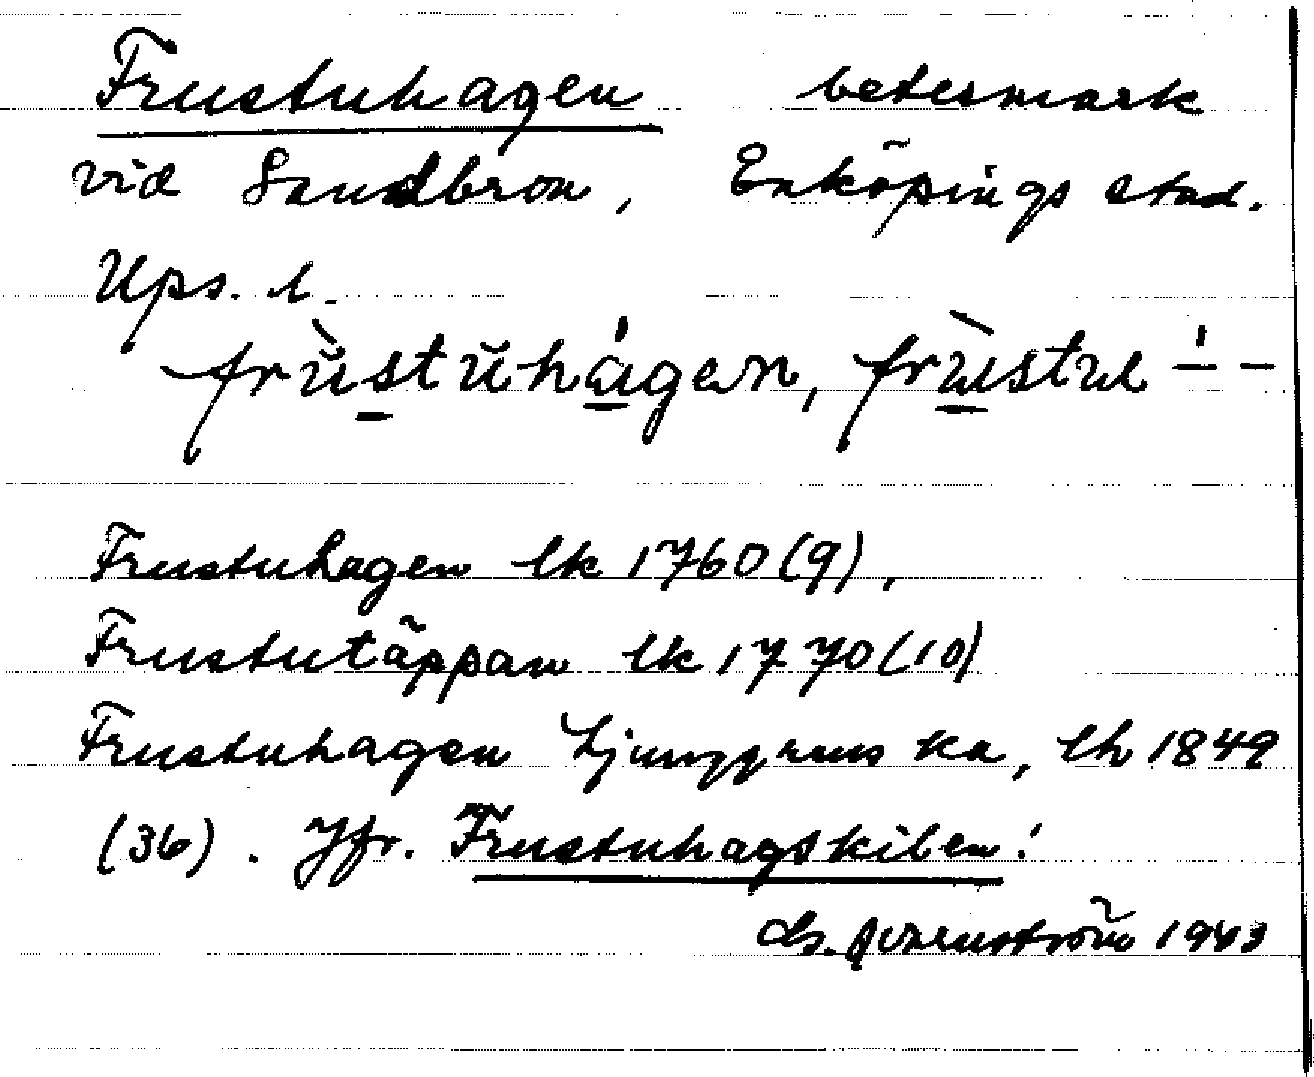 Frustuhagen betesmark
vid Sandbron, Enköpings stad.
Ups. l.
frùstŭhágen, frùstul -́ -
Frustuhagen lk 1760 (9),
Frustutäppan lk 1770 (10)
Frustuhagen Ljunggrens ka, lh 1849
(36). Jfr. Frustuhagskilen!
1943